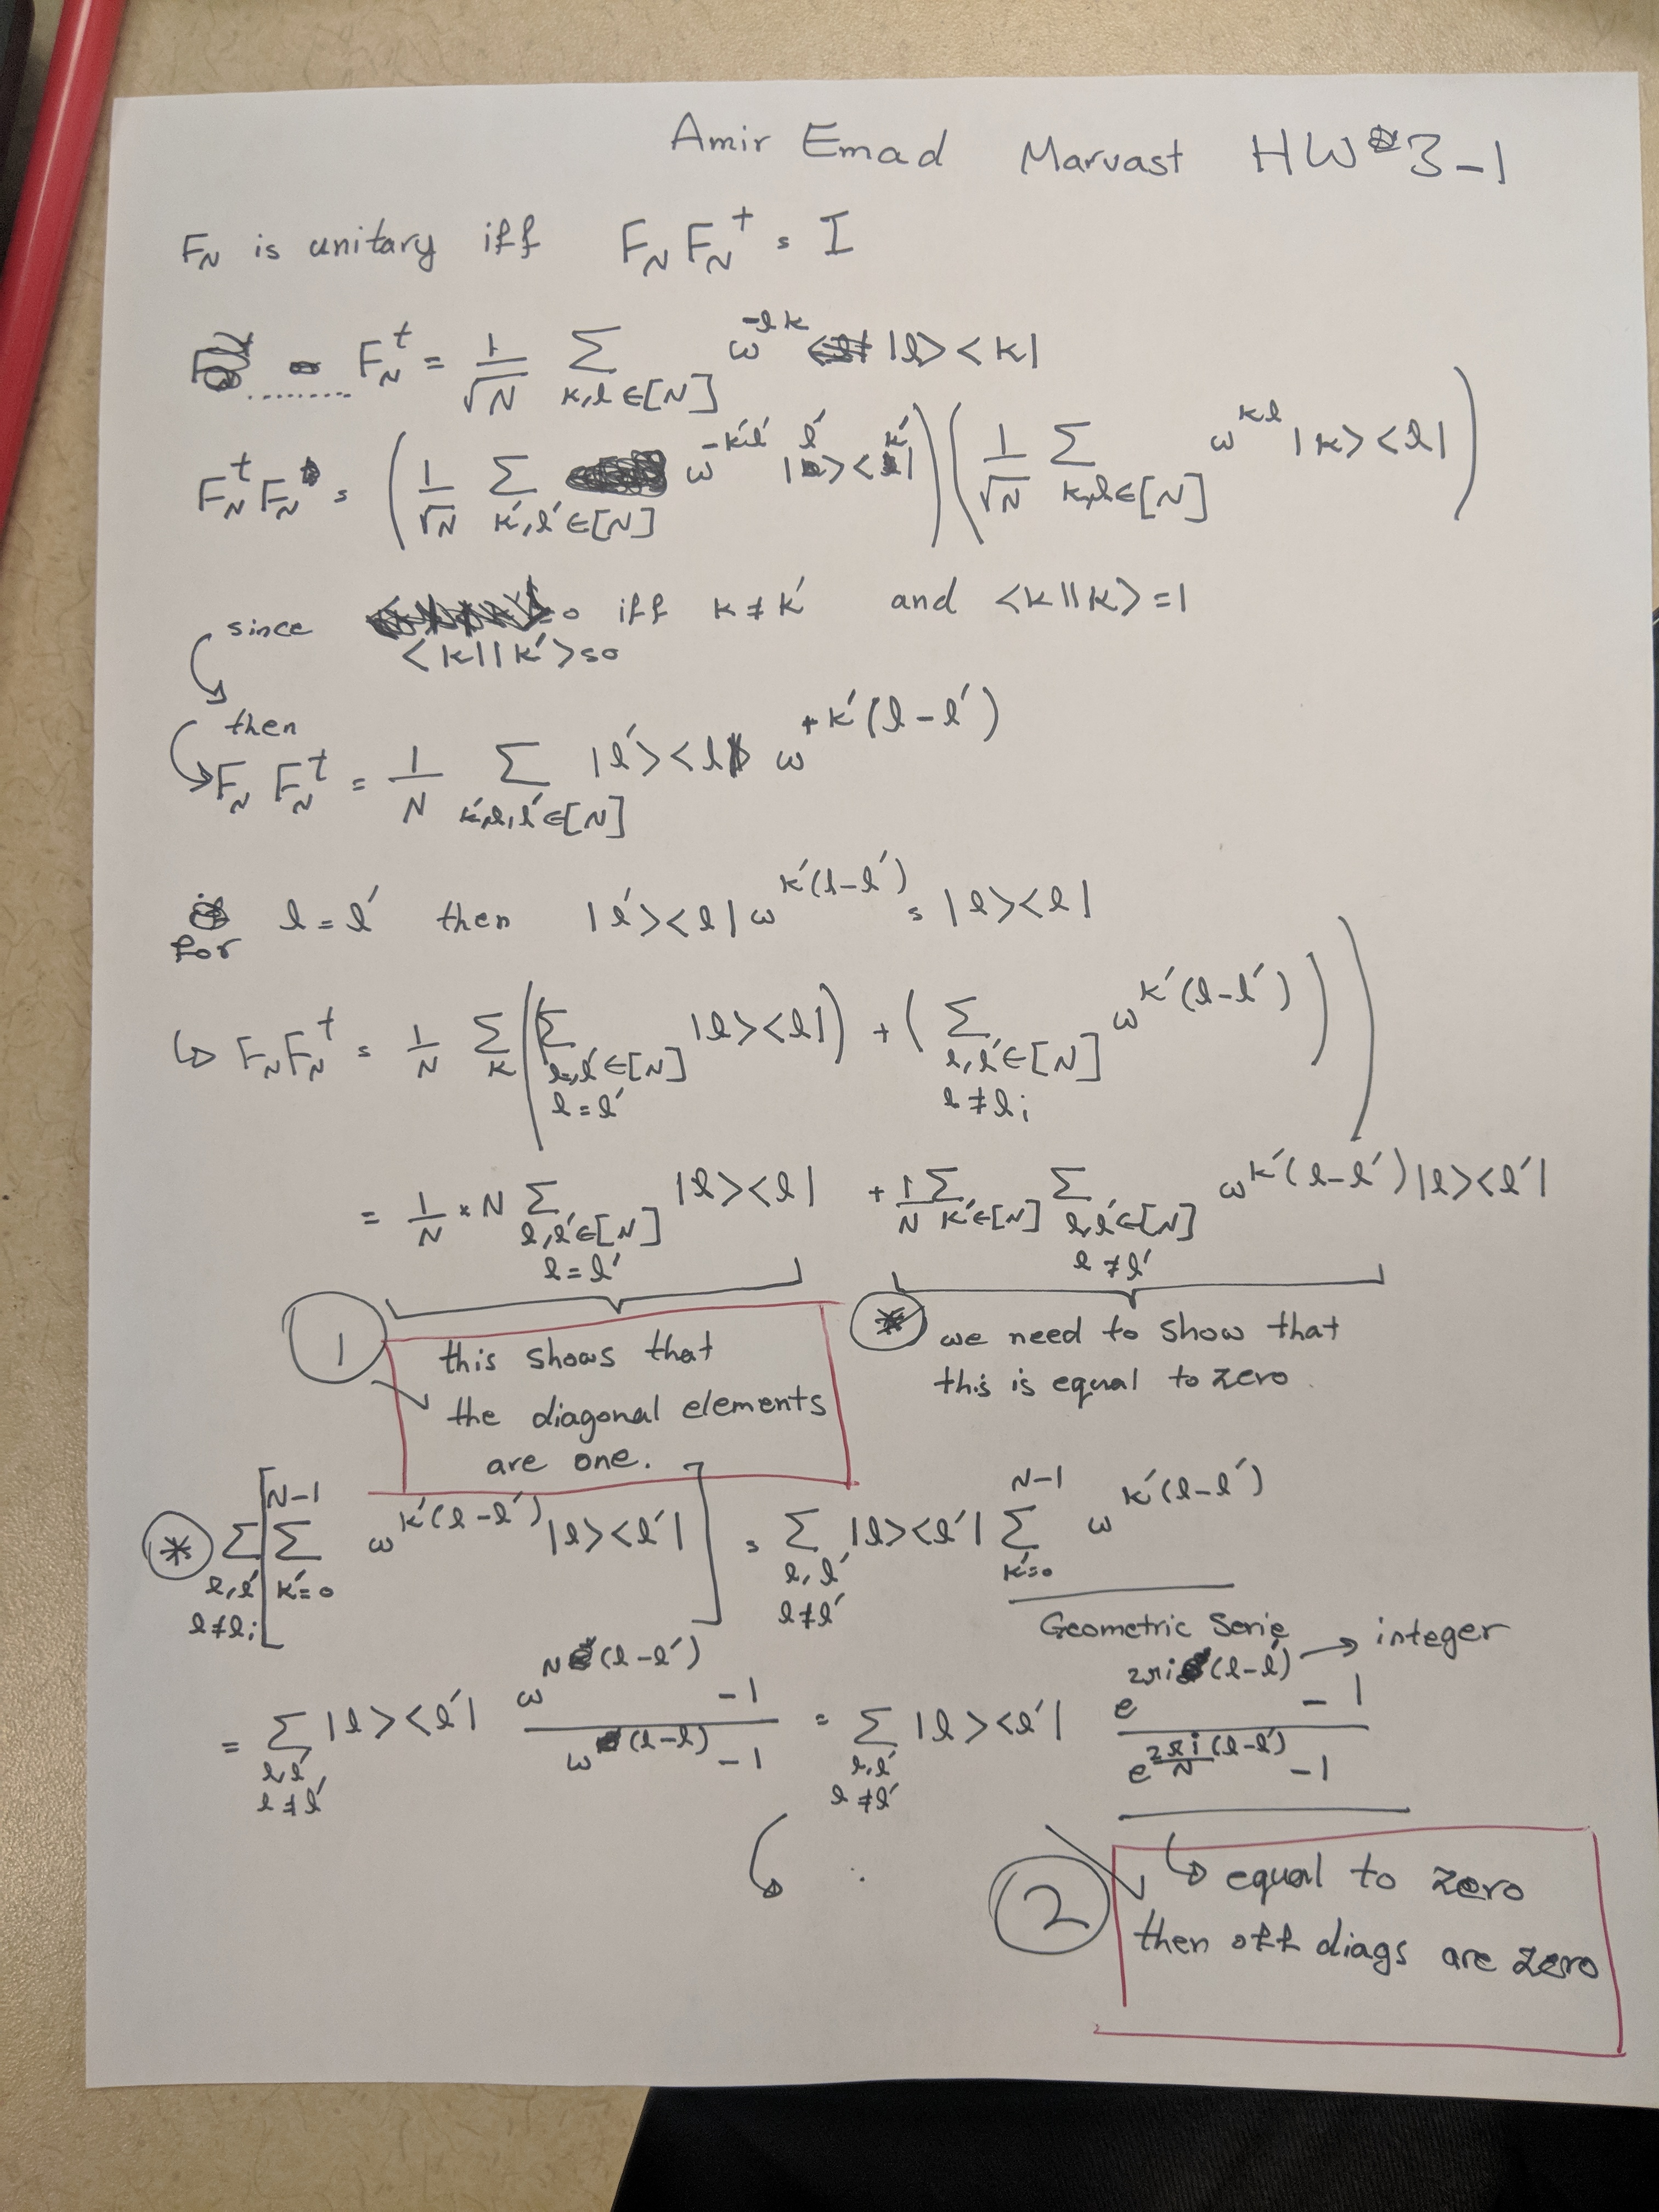 Amir Emad Marvast HW 3-1
F_N is unitary iff F_N F_N^† = I
F_N^† = 1/√N Σ_{k,l∈[N]} ω^{-lk} |l><k|
F_N^† F_N = (1/√N Σ_{k',l'∈[N]} ω^{-k'l'} |l'><k'|) (1/√N Σ_{k,l∈[N]} ω^{kl} |k><l|)
since <k||k'>=0 iff k≠k' and <k||k>=1
then
F_N F_N^† = 1/N Σ_{k',l,l'∈[N]} |l'><l| ω^{+k'(l-l')}
for l=l' then |l'><l| ω^{k'(l-l')} = |l><l|
↳ F_N F_N^† = 1/N Σ_k ((Σ_{l,l'∈[N] l=l'} |l><l|) + (Σ_{l,l'∈[N] l≠l;} ω^{k'(l-l')}))
= 1/N × N Σ_{l,l'∈[N] l=l'} |l><l| + 1/N Σ_{k'∈[N]} Σ_{l,l'∈[N] l≠l'} ω^{k'(l-l')} |l><l'|
① this shows that
the diagonal elements
are one.
⊛ we need to show that
this is equal to zero.
⊛ Σ_{l,l' l≠l;} [Σ_{k'=0}^{N-1} ω^{k'(l-l')} |l><l'|] = Σ_{l,l' l≠l'} |l><l'| Σ_{k'=0}^{N-1} ω^{k'(l-l')}
Geometric Serie
= Σ_{l,l' l≠l'} |l><l'| (ω^{N(l-l')} -1)/(ω^{(l-l)} -1) = Σ_{l,l' l≠l'} |l><l'| (e^{2πi(l-l')} -1)/(e^{2πi/N (l-l')} -1) → integer
② ↳ equal to zero
then off diags are zero